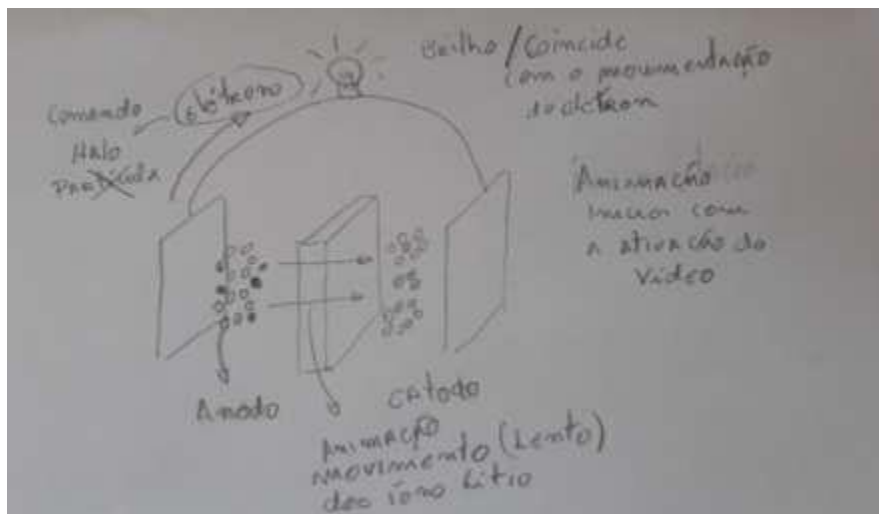 Brilho / Coincide
com o movimentação
do elétron
elétrons
Comando
Halo
Partícula
Animação
iniciar com
a ativação do
Vídeo
Anodo
CAtodo
Animação
movimento (Lento)
dos íons Lítio